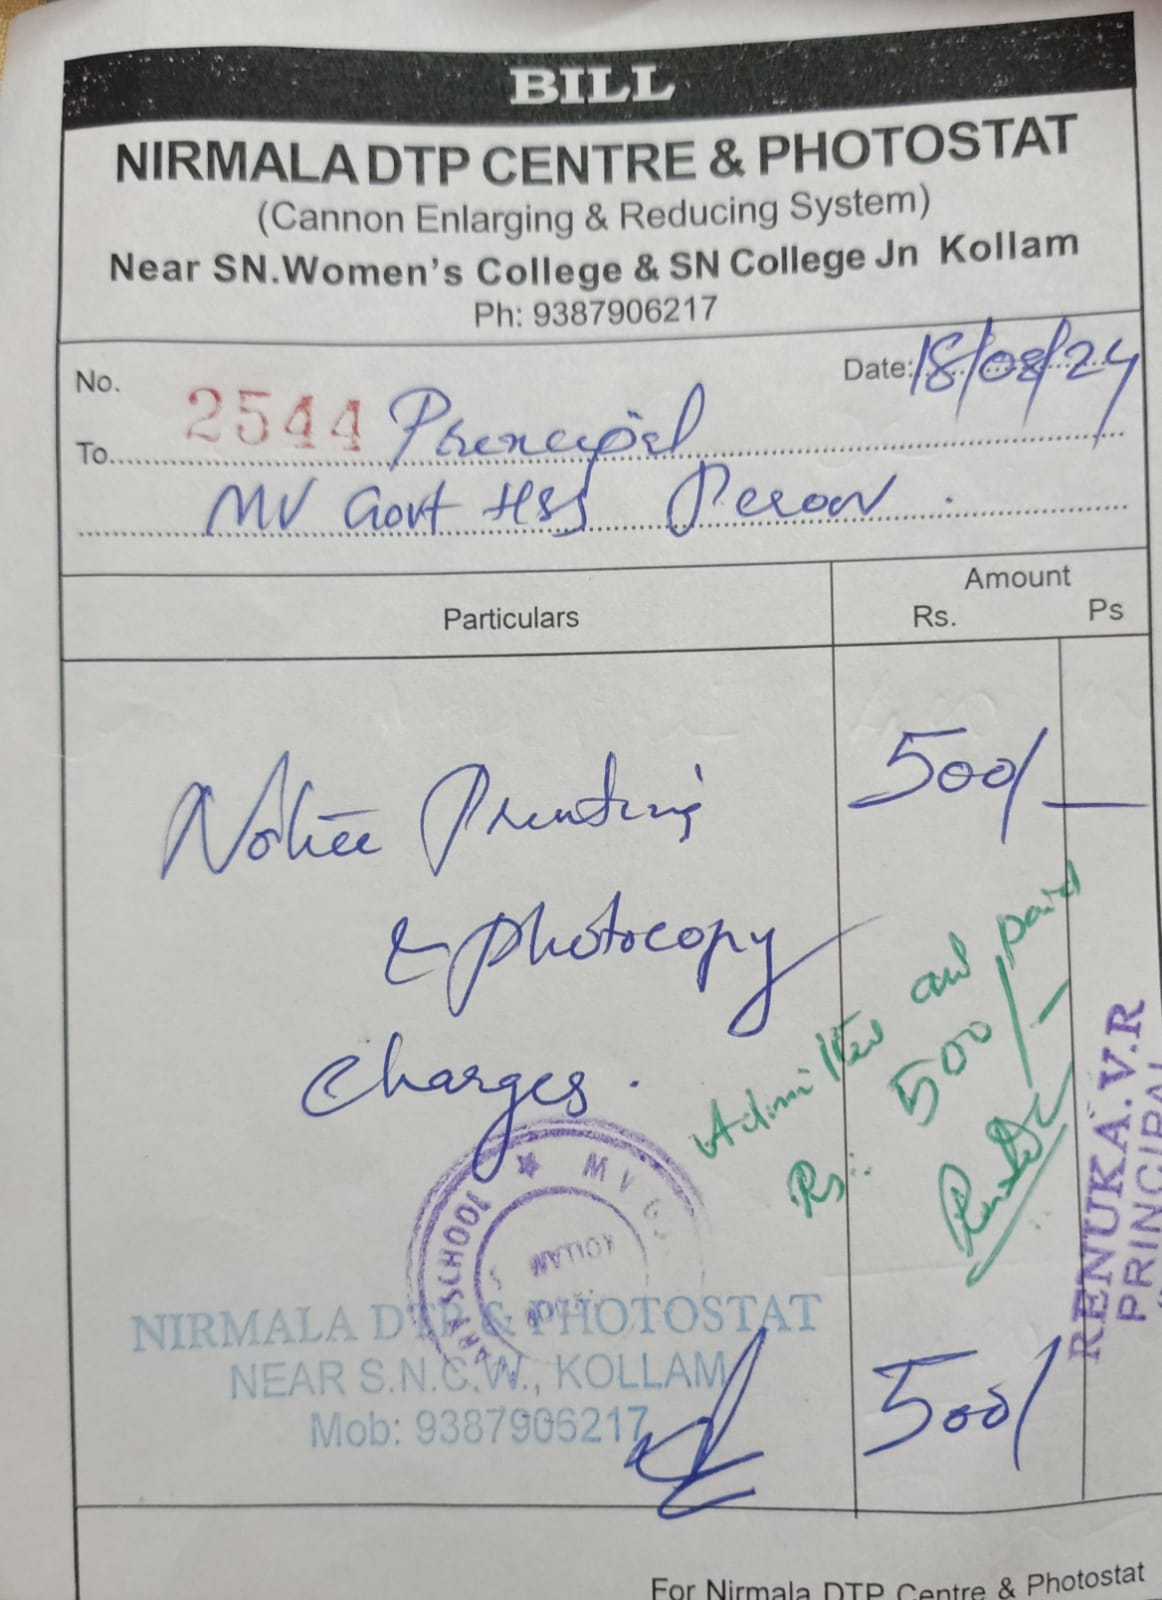 BILL
NIRMALA DTP CENTRE & PHOTOSTAT
(Cannon Enlarging & Reducing System)
Near SN.Women's College & SN College Jn Kollam
Ph: 9387906217
No. 2544
Date: 18/08/24
To. Principal
MV Govt HSS Peroor.
Particulars
Amount
Rs. Ps
Notice Printing 500/-
& photocopy
charges.
Admitted and paid
Rs: 500/-
RENUKA.V.R
PRINCIPAL
SCHOOL ★ MV
KOLLAM
NIRMALA DTP & PHOTOSTAT
NEAR S.N.C.W., KOLLAM
Mob: 9387906217
500/
For Nirmala DTP Centre & Photostat